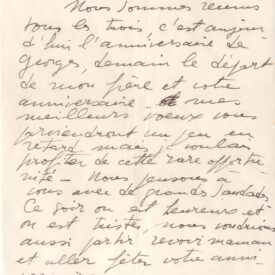 Nous sommes réunis
tous les trois c'est aujour
d'hui l'anniversaire de
Georges, demain le départ
de mon frère et votre
anniversaire et mes
meilleurs voeux vous
parviendront un peu en
retard mais je voulais
profiter de cette rare opportu
nité – Nous pensons à
vous avec de grandes saudades
Ce soir on est heureux et
on est tristes, nous voudrions
aussi partir revoir maman
et aller fêter votre anni